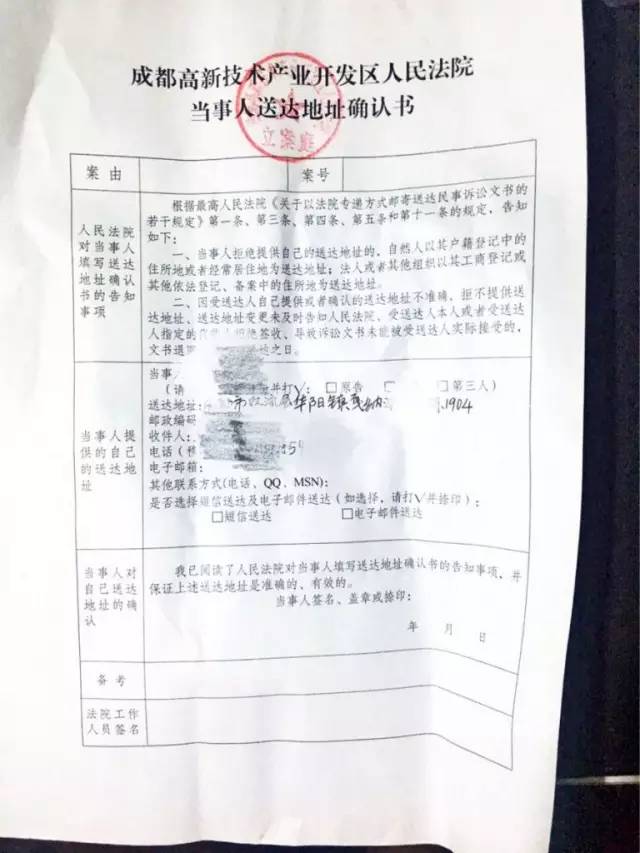 成都高新技术产业开发区人民法院
当事人送达地址确认书
立案庭
案由
案号
人民法院
对当事人
填写送达
地址确认
书的告知
事项
根据最高人民法院《关于以法院专递方式邮寄送达民事诉讼文书的
若干规定》第一条、第三条、第四条、第五条和第十一条的规定，告知
如下：
一、当事人拒绝提供自己的送达地址的，自然人以其户籍登记中的
住所地或者经常居住地为送达地址；法人或者其他组织以其工商登记或
其他依法登记、备案中的住所地为送达地址。
二、因受送达人自己提供或者确认的送达地址不准确、拒不提供送
达地址、送达地址变更未及时告知人民法院、受送达人本人或者受送达
人指定的 拒绝签收、导致诉讼文书未能被受送达人实际接受的，
文书退 达之日。
当事人提
供的自己
的送达地
址
当事
（请 并打√：□原告 □第三人）
送达地址： 市双流 华阳镇 1904
邮政编码
收件人：
电话（ 
电子邮箱：
其他联系方式(电话、QQ、MSN)：
是否选择短信送达及电子邮件送达（如选择，请打√并捺印）：
□短信送达 □电子邮件送达
当事人对
自己送达
地址的确
认
我已阅读了人民法院对当事人填写送达地址确认书的告知事项，并
保证上述送达地址是准确的、有效的。
当事人签名、盖章或捺印：
年 月 日
备考
法院工作
人员签名